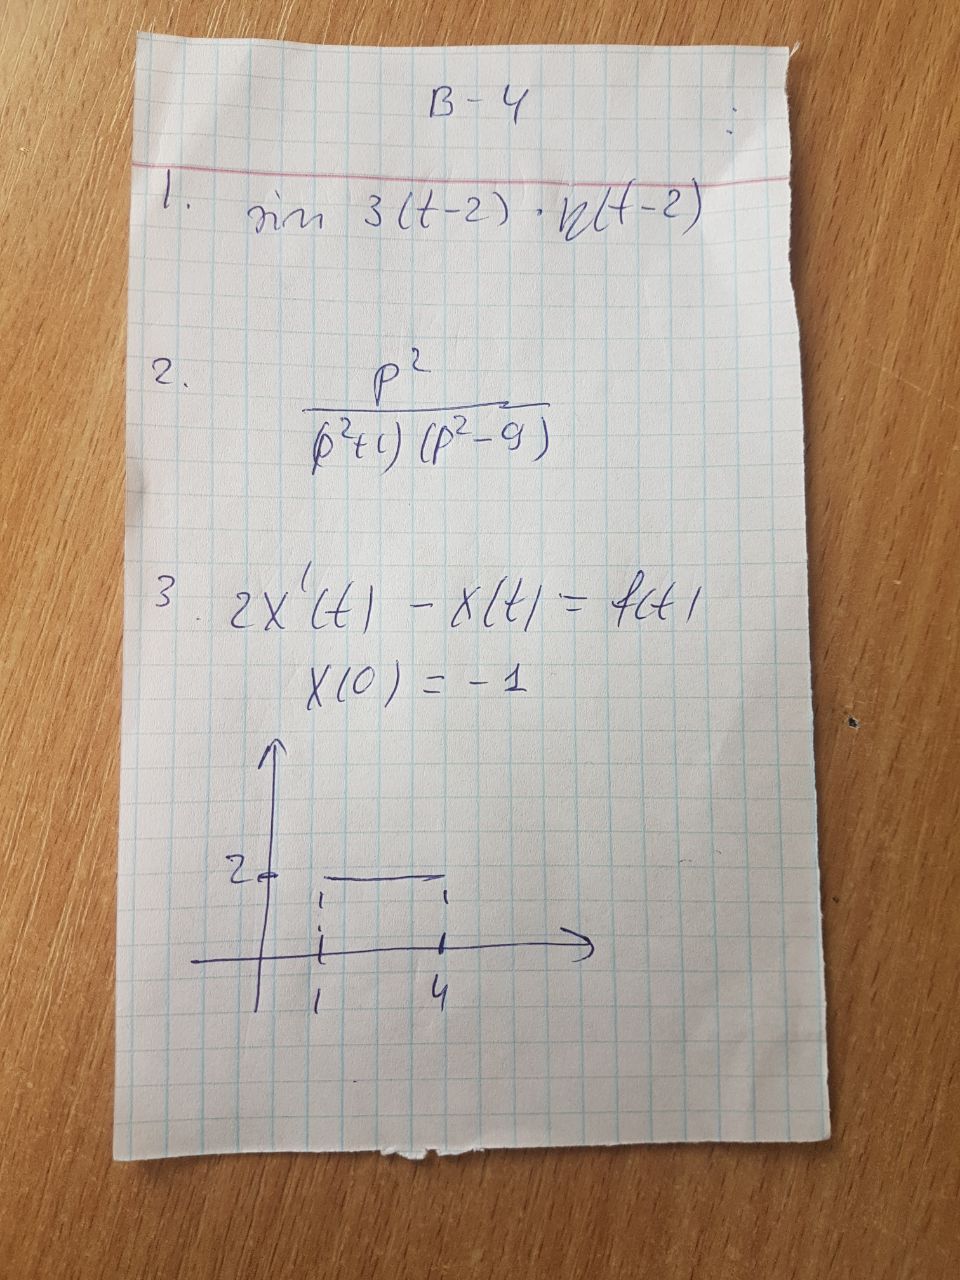 В-4
1. sin 3(t-2) · η(t-2)
2. p²
(p²+1) (p²-9)
3. 2x'(t) - x(t) = f(t)
x(0) = -1
2
1 4